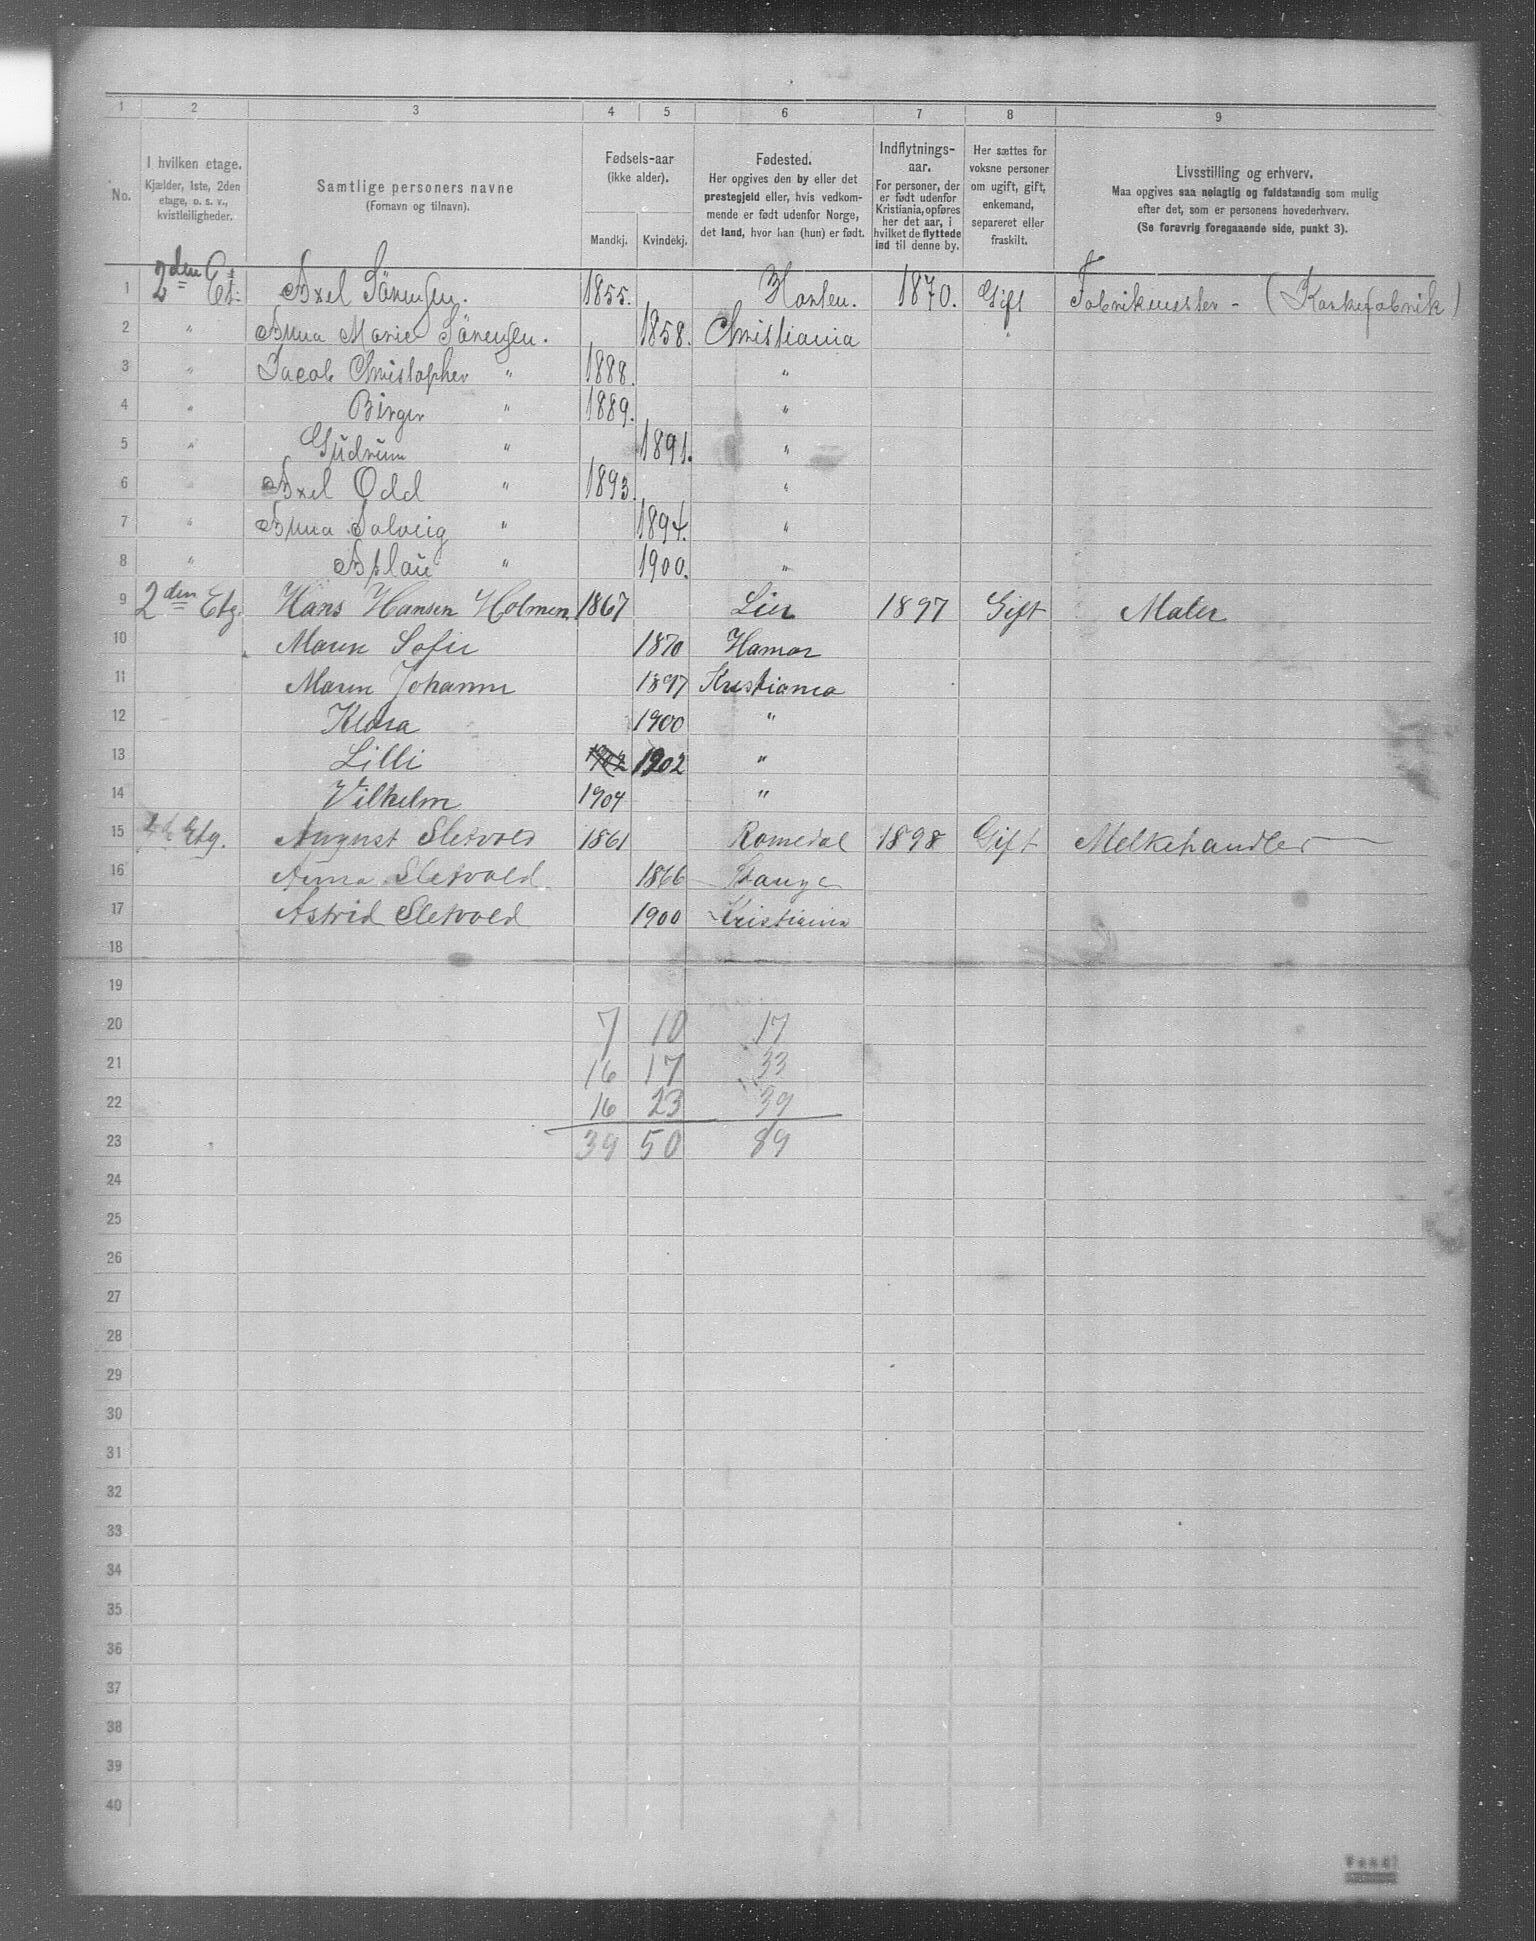 1 2 3 4 5 6 7 8 9
No.
I hvilken etage.
Kjælder, 1ste, 2den
etage, o. s. v.,
kvistleiligheder.
Samtlige personers navne
(Fornavn og tilnavn).
Fødsels-aar
(ikke alder).
Mandkj. Kvindekj.
Fødested.
Her opgives den by eller det
prestegjeld eller, hvis vedkom-
mende er født udenfor Norge,
det land, hvor han (hun) er født.
Indflytnings-
aar.
For personer, der
er født udenfor
Kristiania, opføres
her det aar, i
hvilket de flyttede
ind til denne by.
Her sættes for
voksne personer
om ugift, gift,
enkemand,
separeret eller
fraskilt.
Livsstilling og erhverv.
Maa opgives saa nøiagtig og fuldstændig som mulig
efter det, som er personens hovederhverv.
(Se forøvrig foregaaende side, punkt 3).
1 2den Et. Axel Sörensen. 1855. Horten. 1870. Gift Fabrikmester - (Korkefabrik)
2 " Anna Marie Sörensen. 1858. Christiania "
3 " Jacob Christopher " 1888. "
4 " Birger " 1889. "
5 " Gudrun " 1891. "
6 " Axel Odd " 1893. "
7 " Anna Solveig " 1894. "
8 " Aslau " 1900. "
9 2den Etg. Hans Hansen Holmen 1867 Lier 1897 Gift Maler
10 Maren Sofie 1870 Hamar
11 Maren Johanne 1897 Kristiania
12 Klara 1900 "
13 Lilli 1902 1902 "
14 Vilhelm 1904 "
15 Etg. August Sletvold 1861 Romedal 1898 Gift Melkehandler
16 Anna Sletvold 1866 Stange
17 Astrid Sletvold 1900 Kristiania
18
19
20 7 10 17
21 16 17 33
22 16 23 39
23 39 50 89
24
25
26
27
28
29
30
31
32
33
34
35
36
37
38
39
40
Vend!